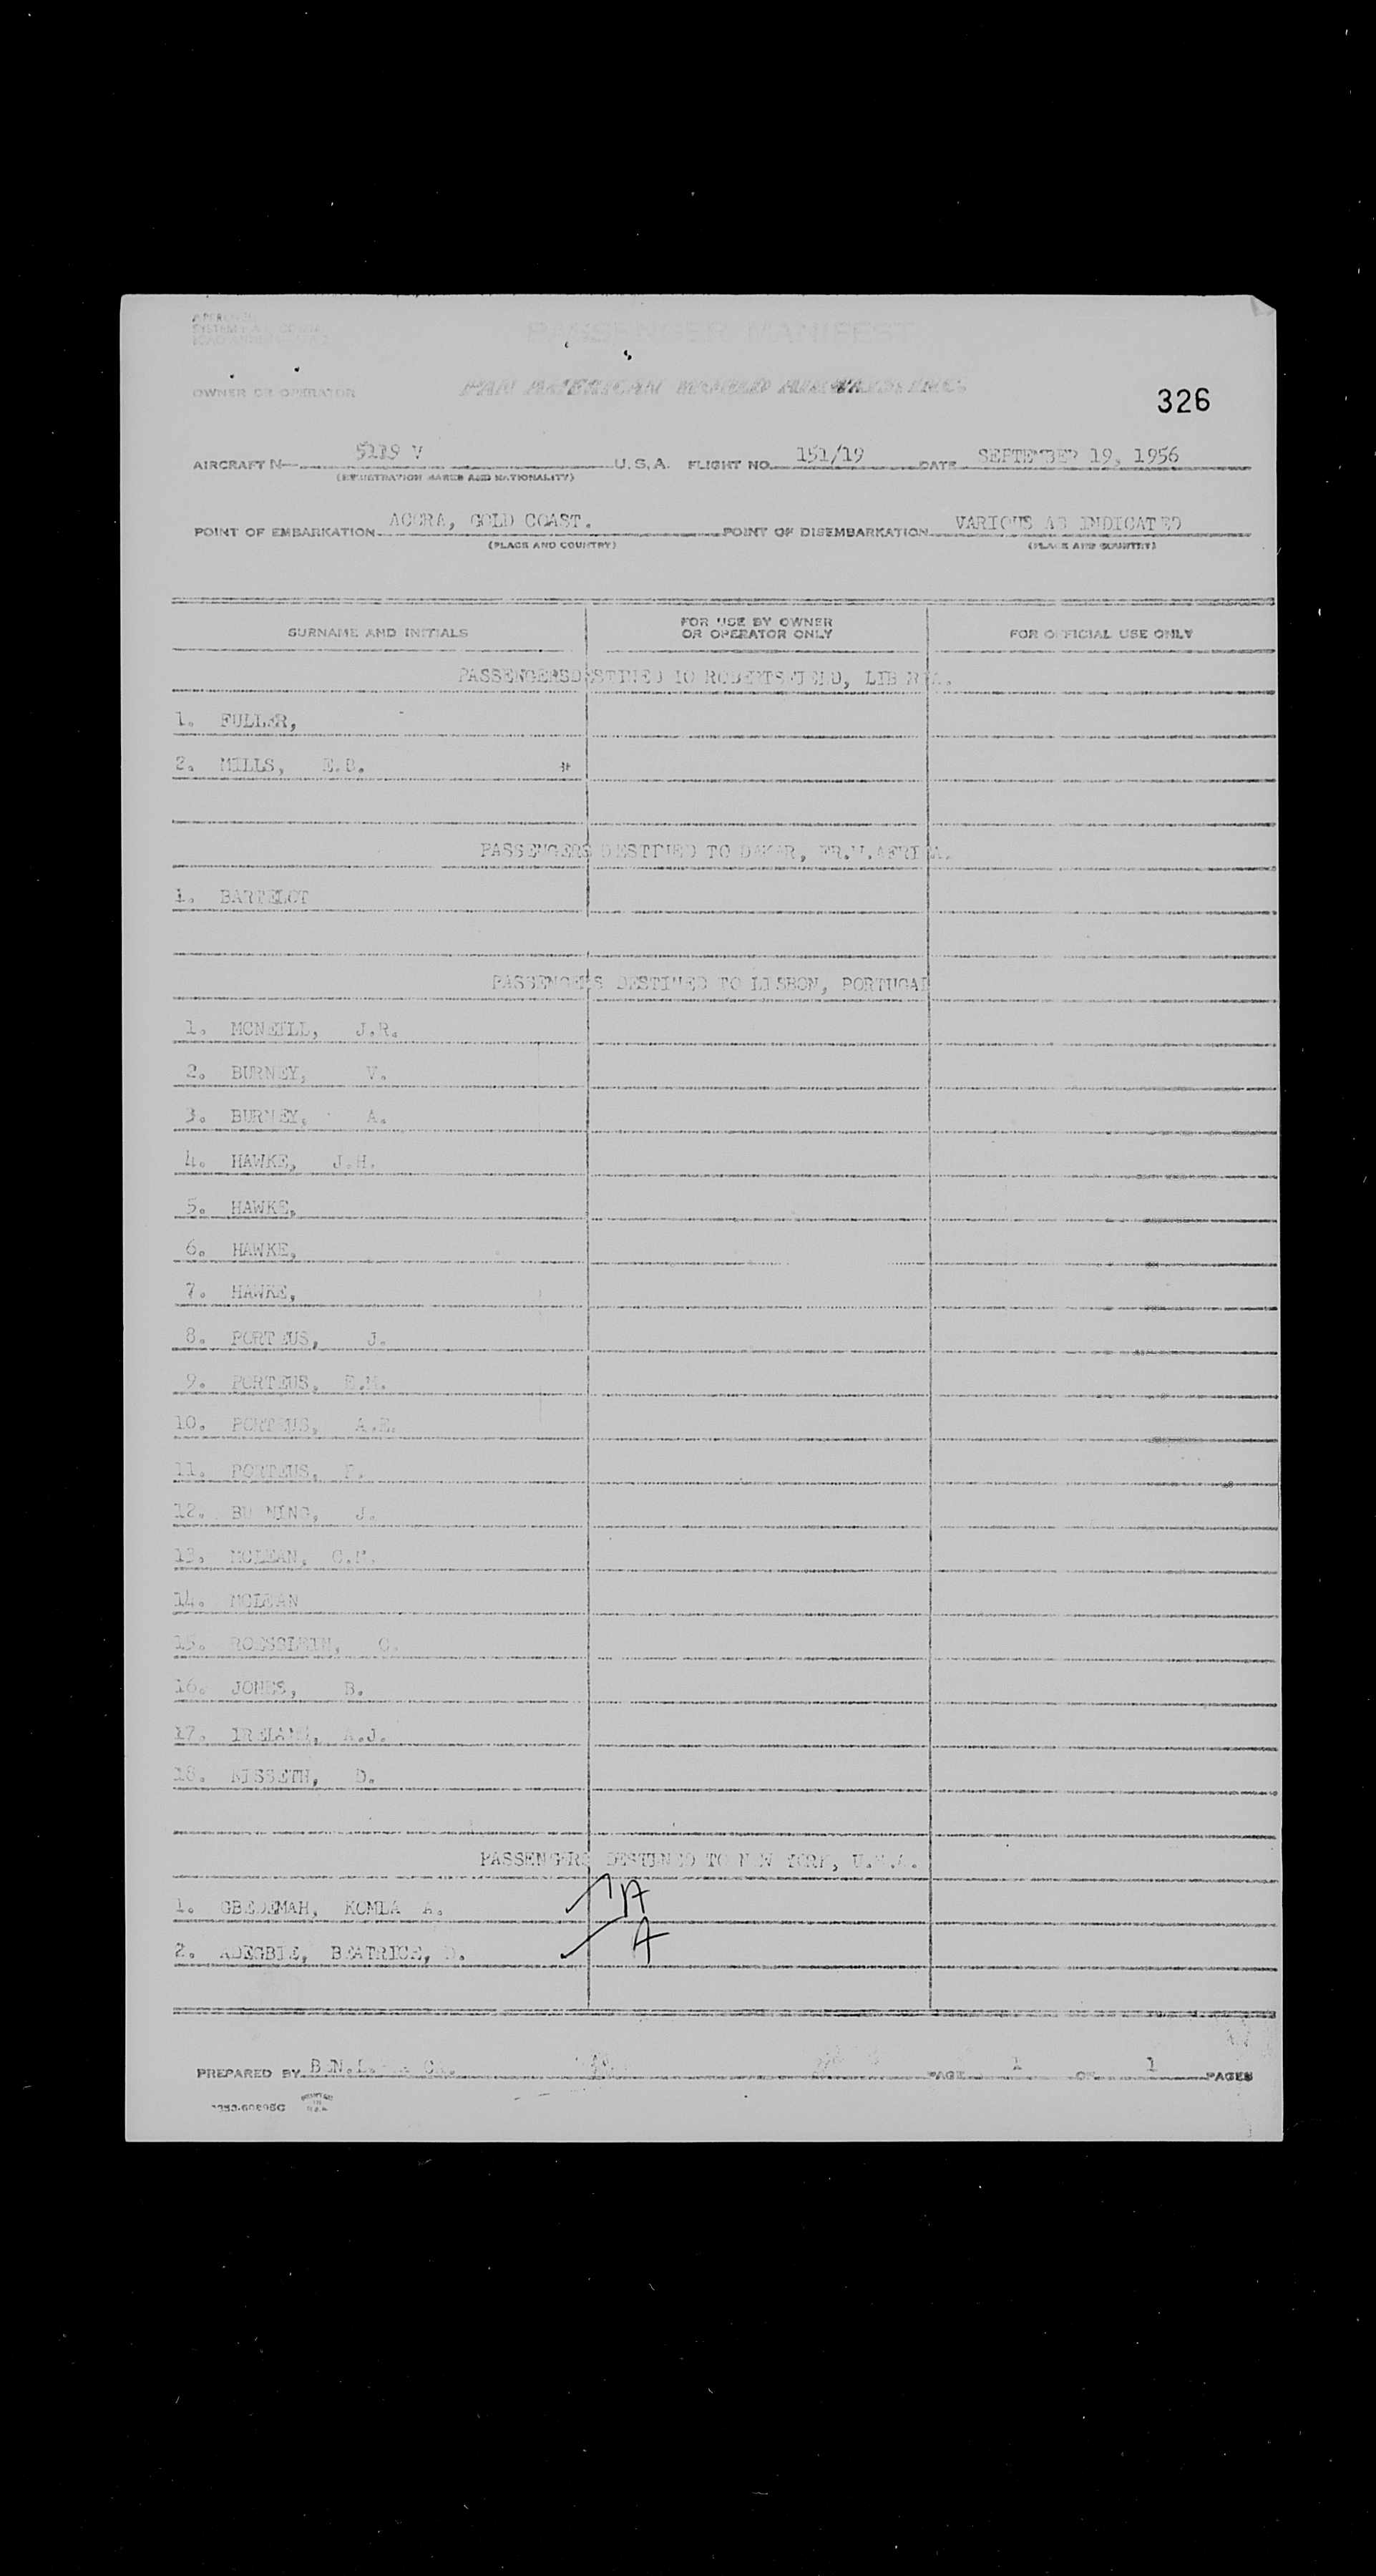 PASSENGER MANIFEST
OWNER OR OPERATOR PAN AMERICAN WORLD AIRWAYS, INC.
326
AIRCRAFT N 5119 V U.S.A. FLIGHT NO. 151/19 DATE SEPTEMBER 19, 1956
(REGISTRATION MARKS AND NATIONALITY)
POINT OF EMBARKATION ACCRA, GOLD COAST. POINT OF DISEMBARKATION VARIOUS AS INDICATED
(PLACE AND COUNTRY) (PLACE AND COUNTRY)
SURNAME AND INITIALS FOR USE BY OWNER OR OPERATOR ONLY FOR OFFICIAL USE ONLY
PASSENGERSDESTINED TO ROBERTSFIELD, LIBERIA.
1. FULLER,
2. MILLS, E.B. *
PASSENGERS DESTINED TO DAKAR, FR.W.AFRICA.
1. BARTELOT
PASSENGERS DESTINED TO LISBON, PORTUGAL
1. MCNEILL, J.R.
2. BURNEY, V.
3. BURNEY, A.
4. HAWKE, J.H.
5. HAWKE,
6. HAWKE,
7. HAWKE,
8. PORTEUS, J.
9. PORTEUS, E.M.
10. PORTEUS, A.E.
11. PORTEUS,
12. J.
13. MCLEAN,
14. MCLEAN
15. ROESSLEIN,
16. JONES, B.
17. IRELAND, A.J.
18. NISSETH, D.
PASSENGERS DESTINED TO NEW YORK, U.S.A.
1. GBEDEMAH, KOMLA A. A
2. ADEGBIE, BEATRICE, A
PREPARED BY PAGE 1 OF 1 PAGES